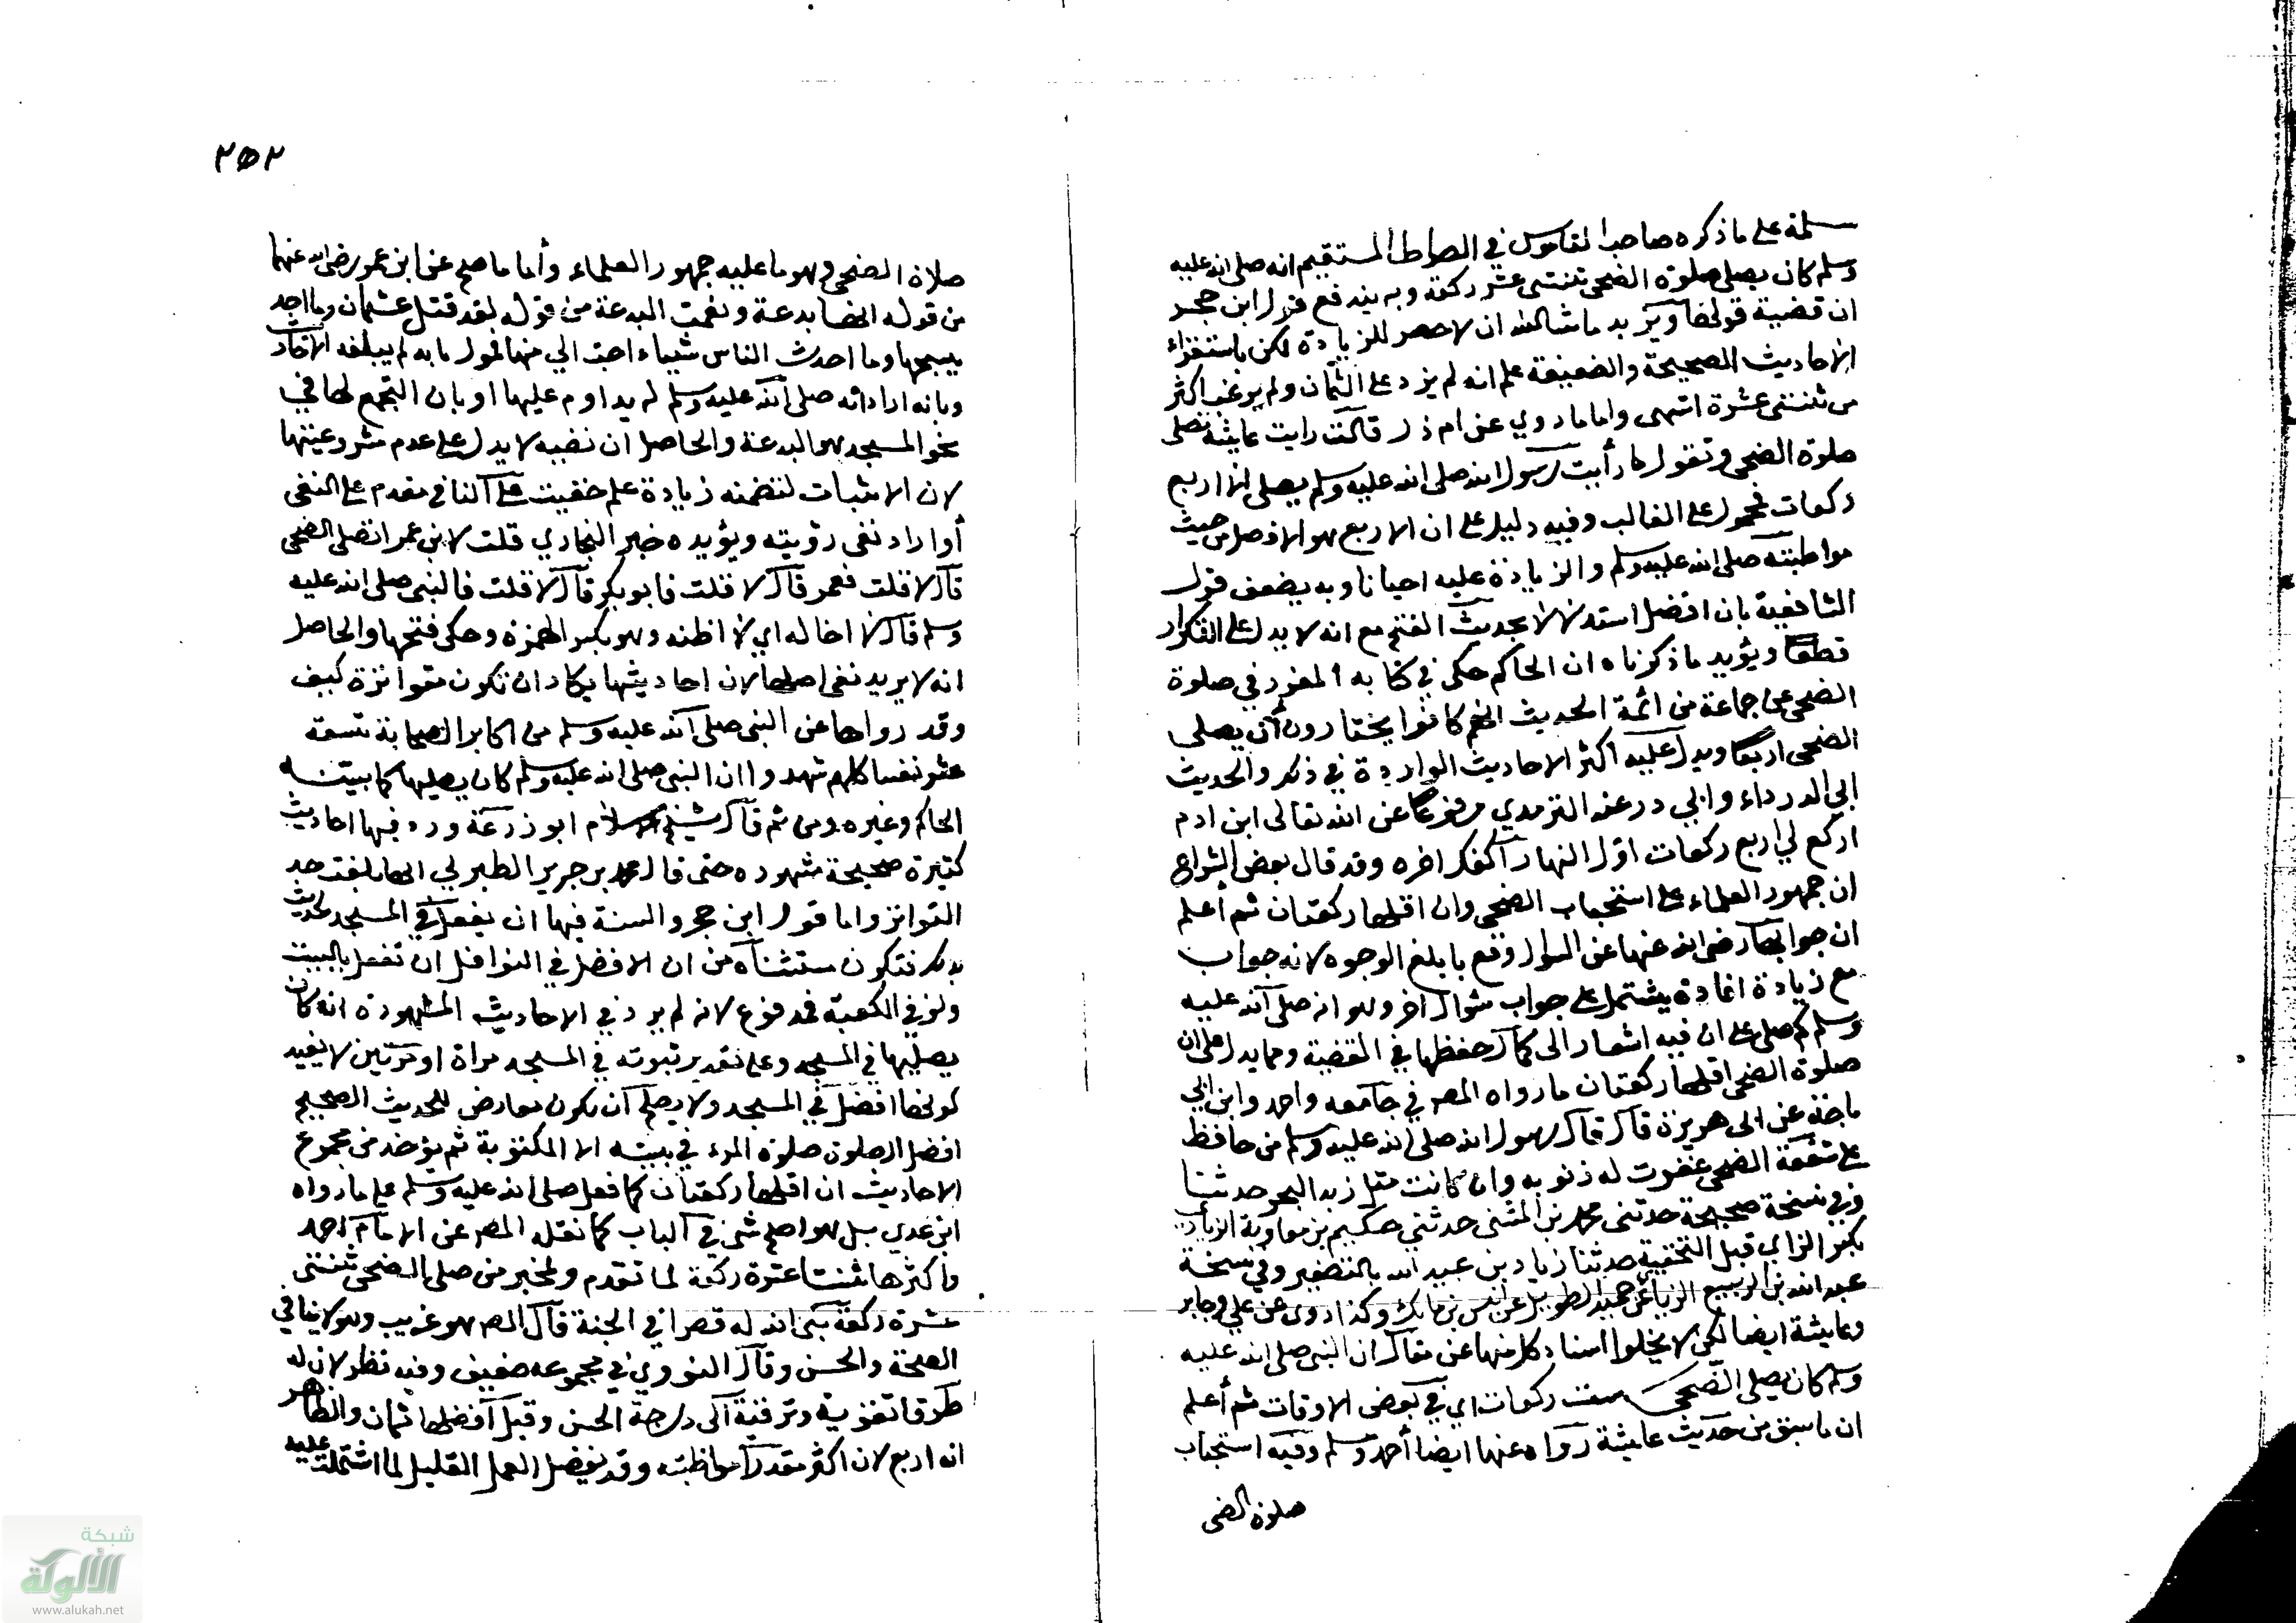 سلمة على ما ذكره صاحب القاموس في الصراط المستقيم انه صلى الله عليه
وسلم كان يصلي صلوة الضحى ثنتي عشر ركعة وبه يندفع قول ابن حجر
ان قضية قولها ويزيد ما شاء الله ان لا حصر للزيادة لكن باستقراء
الاحاديث الصحيحة والضعيفة علم انه لم يزد على الثمان ولم يرغب اكثر
من ثنتي عشرة انتهى واما ما روي عن ام ذر قالت رايت عايشة تصلي
صلوة الضحى وتقول ما رأيت رسول الله صلى الله عليه وسلم يصلي الا اربع
ركعات فمحمول على الغالب وفيه دليل على ان الاربع هو الافضل من حيث
مواظبته صلى الله عليه وسلم والزيادة عليه احيانا وبه يضعف قول
الشافعية بان افضل استدلالا بحديث الفتح مع انه لا يدل على التكرار
قطعا ويؤيد ما ذكرناه ان الحاكم حكى في كتابه المفرد في صلوة
الضحى عن جماعة من ائمة الحديث انهم كانوا يختارون أن يصلى
الضحى اربعا ويدل عليه اكثر الاحاديث الواردة في ذلك والحديث
ابي الدرداء وابي ذر عند الترمذي مرفوعا عن الله تعالى ابن ادم
اركع لي اربع ركعات اول النهار اكفك اخره وقد قال بعض الشراح
ان جمهور العلماء على استحباب الضحى وان اقلها ركعتان ثم أعلم
ان جوابها رضي الله عنها عن السوال وقع بابلغ الوجوه لانه جواب
مع زيادة افادة يشتمل على جواب سوال اخر وهو انه صلى الله عليه
وسلم كم صلى على ان فيه اشعار الى كمال حفظها في القضية ومما يدل على ان
صلوة الضحى اقلها ركعتان ما رواه المصـ في جامعه واحمد وابن ابي
ماجة عن ابي هريرة قال قال رسول الله صلى الله عليه وسلم من حافظ
على شفعة الضحى غفرت له ذنوبه وان كانت مثل زبد البحر حدثنا
وفي نسخة صحيحة حدثني محمد بن المثنى حدثني حكيم بن معاوية الزيادي
بكسر الزاي قبل التحتية حدثنا زياد بن عبيد الله بالتصغير وفي نسخة
عبد الله بن الربيع الزيادي عن حميد الطويل عن انس بن مالك وكذا روي عن علي وجابر
وعايشة ايضا لكن لا يخلوا اسناد كل منها عن مقال ان النبي صلى الله عليه
وسلم كان يصلي الضحى ست ركعات اي في بعض الاوقات ثم أعلم
ان ما سبق من حديث عايشة رواه عنها ايضا أحمد ومسلم وفيه استحباب
صلوة الضحى
٢٥٢
صلاة الضحى وهو ما عليه جمهور العلماء وأما ما صح عن ابن عمر رضي الله عنهما
من قوله انها بدعة ونعمت البدعة من قوله لقد قتل عثمان وما احد
يسبحها وما احدث الناس شيئا احب الي منها فمول بانه لم يبلغه الاخبار
وبانه اراد انه صلى الله عليه وسلم لم يداوم عليها او بان التجمع لها في
نحو المسجد هو البدعة والحاصل ان نفيه لا يدل على عدم مشروعيتها
لان الاثبات لتضمنه زيادة علم خفيت على النافي مقدم على النفي
أو اراد نفي رؤيته ويؤيده خبر البخاري قلت لابن عمر اتصلي الضحى
قال لا قلت فعمر قال لا قلت فابو بكر قال لا قلت فالنبي صلى الله عليه
وسلم قال لا اخاله اي لا اظنه وهو بكسر الهمزة وحكى فتحها والحاصل
انه لا يريد نفي اصلها لان احاديثها يكاد ان تكون متواترة كيف
وقد رواها عن النبي صلى الله عليه وسلم من اكابر الصحابة تسعة
عشر نفسا كلهم شهدوا ان النبي صلى الله عليه وسلم كان يصليها كما بينه
الحاكم وغيره ومن ثم قال شيخ الاسلام ابو زرعة ورد فيها احاديث
كثيرة صحيحة مشهورة حتى قال محمد بن جرير الطبري انها بلغت حد
التواتر واما قول ابن حجر والسنة فيها ان يفعل في المسجد لحديث
بذلك فتكون مستثناة من ان الافضل في النوافل ان تفعل بالبيت
ولو في الكعبة فمدفوع لانه لم يرد في الاحاديث المشهورة انه كان
يصليها في المسجد وعلى تقدير ثبوته في المسجد مراة او مرتين لا يفيد
كونها افضل في المسجد ولا يصلح أن يكون معارض للحديث الصحيح
افضل الصلوة صلوة المرء في بيته الا المكتوبة ثم يؤخذ من مجموع
الاحاديث ان اقلها ركعتان كما فعل صلى الله عليه وسلم على ما رواه
ابن عدي بل هو اصح شئ في الباب كما نقله المصـ عن الامام احمد
واكثرها ثنتا عشرة ركعة لما تقدم ولخبر من صلى الضحى ثنتي
عشرة ركعة بنى الله له قصرا في الجنة قال المصـ هو غريب وهو لا ينافي
الصحة والحسن وقال النووي في مجموعه ضعيف وفيه نظر لان له
طرقا تقويه وترقيه الى درجة الحسن وقيل افضلها ثمان والظاهر
انه اربع لان اكثر مقدر مواظبته وقد يفضل العمل القليل لما اشتملت عليه
شبكة
الألوكة
www.alukah.net